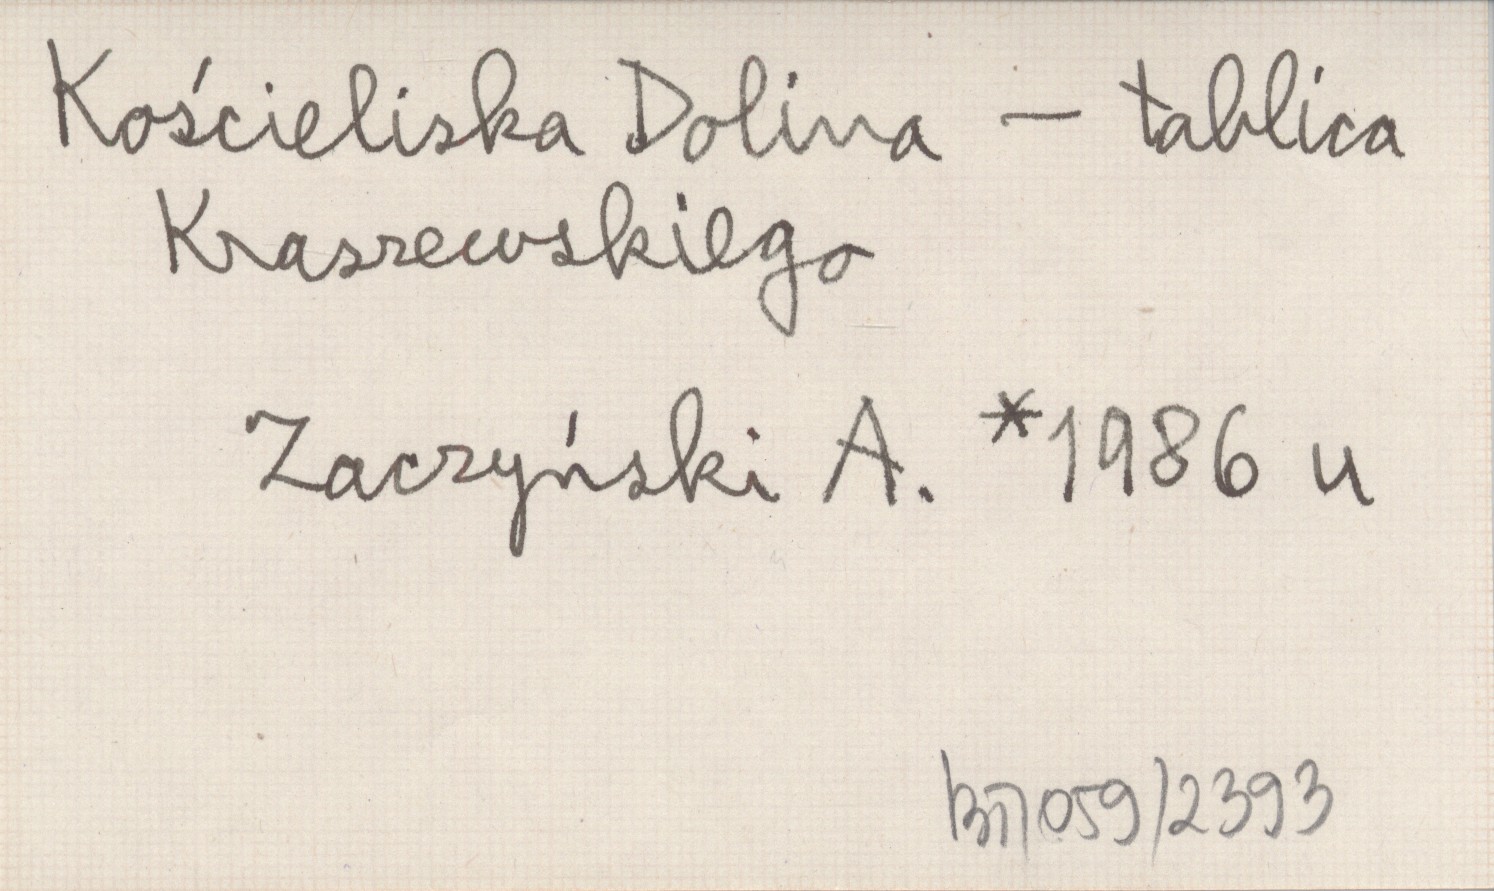 Kościeliska Dolina – tablica
Kraszewskiego
Zaczyński A. *1986 u
059/2393